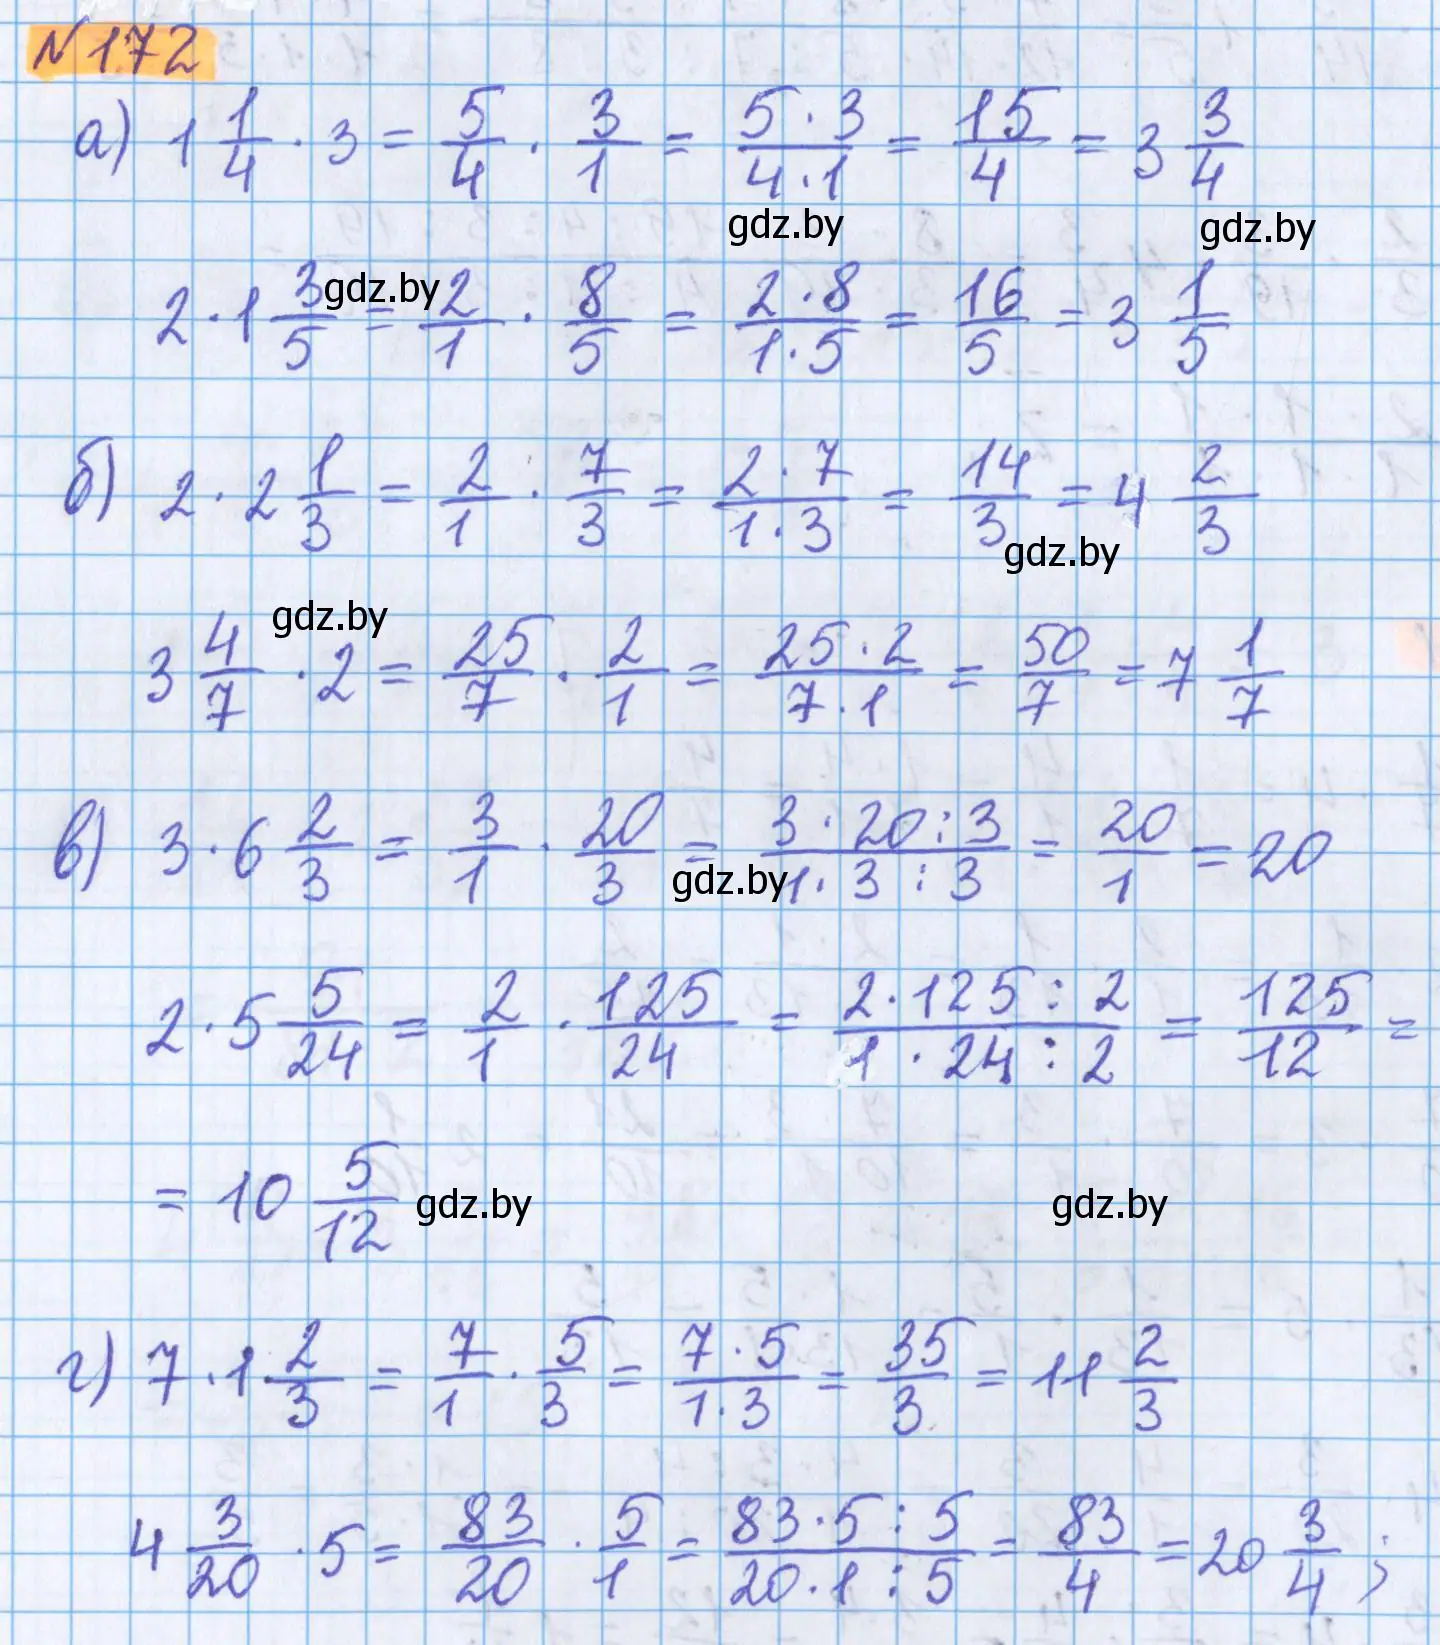 № 172
а) 1 1/4 · 3 = 5/4 · 3/1 = 5 · 3/4 · 1 = 15/4 = 3 3/4
gdz.by gdz.by
2 · 1 3/5 = 2/1 · 8/5 = 2 · 8/1 · 5 = 16/5 = 3 1/5
gdz.by
б) 2 · 2 1/3 = 2/1 · 7/3 = 2 · 7/1 · 3 = 14/3 = 4 2/3
gdz.by
gdz.by
3 4/7 · 2 = 25/7 · 2/1 = 25 · 2/7 · 1 = 50/7 = 7 1/7
в) 3 · 6 2/3 = 3/1 · 20/3 = 3 · 20 : 3/1 · 3 : 3 = 20/1 = 20
gdz.by
2 · 5 5/24 = 2/1 · 125/24 = 2 · 125 : 2/1 · 24 : 2 = 125/12 =
= 10 5/12 gdz.by gdz.by
г) 7 · 1 2/3 = 7/1 · 5/3 = 7 · 5/1 · 3 = 35/3 = 11 2/3
4 3/20 · 5 = 83/20 · 5/1 = 83 · 5 : 5/20 · 1 : 5 = 83/4 = 20 3/4 ;